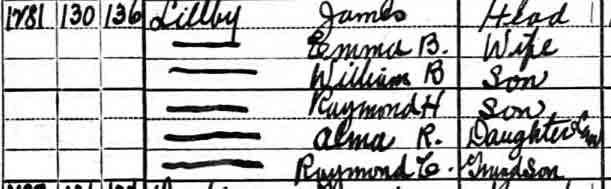 1781 130 136 Lillby James Head
— Emma B. Wife
— William B Son
— Raymond H Son
— Alma R. Daughter Law
— Raymond C. Grandson